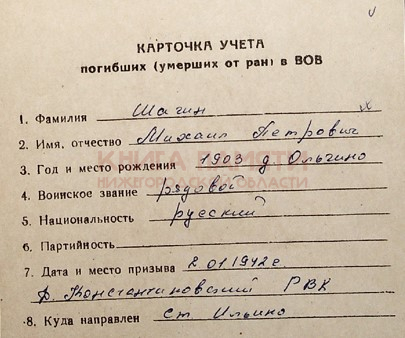 КАРТОЧКА УЧЕТА
погибших (умерших от ран) в ВОВ
1. Фамилия Шагин
2. Имя, отчество Михаил Петрович
3. Год и место рождения 1903 д Ольгино
КНИГА ПАМЯТИ
НИЖЕГОРОДСКОЙ ОБЛАСТИ
4. Воинское звание рядовой
5. Национальность русский
6. Партийность
7. Дата и место призыва 2.01.1942 г.
Д. Константиновский РВК
8. Куда направлен ст Ильино